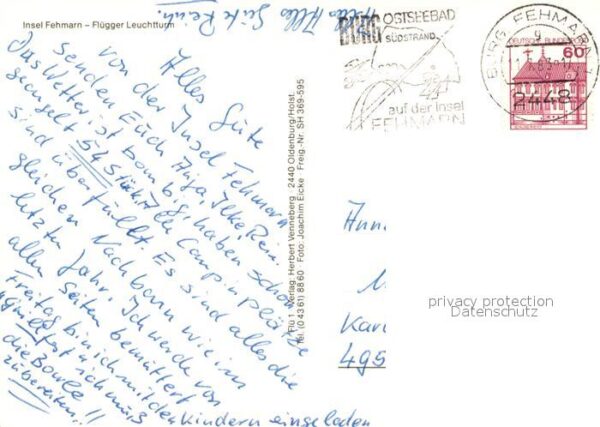 Insel Fehmarn – Flügger Leuchtturm
Alles Gute
von der Insel Fehmarn
senden Euch Anja, Ilke, Rein.
Das Wetter ist bombig, haben schon
geangelt 54 Stück. Alle Campinplätze
sind überfüllt. Es sind alles die
gleichen Nachbarn wie im
letzten Jahr. Ich werde von
allen Seiten bemuttert
Freitag bin ich mit den Kindern eingeladen
Grillfest u ich muß
die Bowle
zubereiten!!
Flü 1 Verlag: Herbert Venneberg 2440 Oldenburg/Holst.
Tel. (0 43 61) 88 60 Foto: Joachim Eicke Freig.-Nr. SH 369-595
BURG OSTSEEBAD
SÜDSTRAND
auf der Insel
FEHMARN
BURG, FEHMARN 1
2448
DEUTSCHE BUNDESPOST
60
Kar
495
privacy protection
Datenschutz